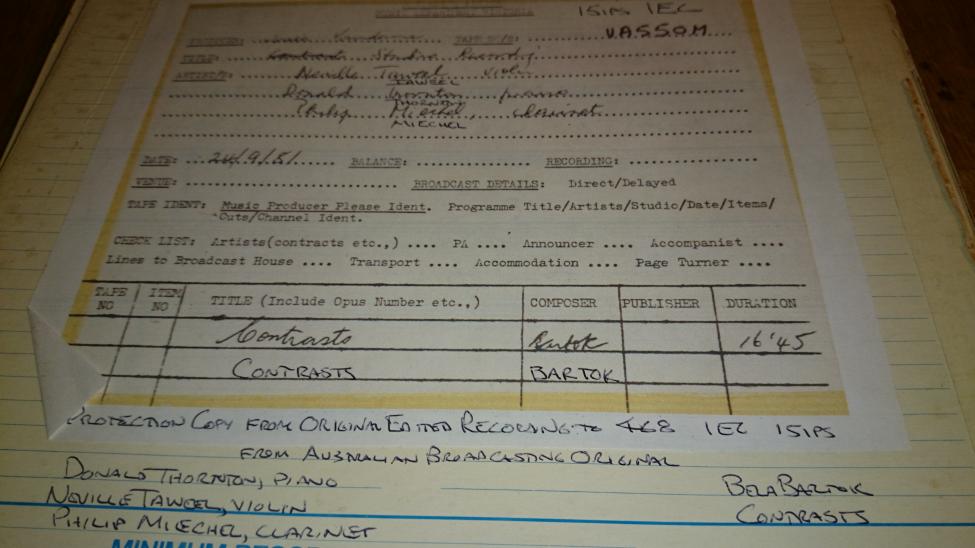 15IPS IEC
V.A.S.S.O.M.
TITLE: Contrasts Studio Recording
ARTIST/S: Neville Taweel violin
TAWEEL
Donald Thornton
THORNTON
Philip Miechel, clarinet
MIECHEL
DATE: 24/9/81 BALANCE: RECORDING:
VENUE: BROADCAST DETAILS: Direct/Delayed
TAPE IDENT: Music Producer Please Ident. Programme Title/Artists/Studio/Date/Items/
Cuts/Channel Ident.
CHECK LIST: Artists(contracts etc.,) .... PA .... Announcer .... Accompanist ....
Lines to Broadcast House .... Transport .... Accommodation .... Page Turner ....
TAPE NO ITEM NO TITLE (Include Opus Number etc.,) COMPOSER PUBLISHER DURATION
Contrasts Bartok 16'45
CONTRASTS BARTOK
PROTECTION COPY FROM ORIGINAL EDITED RECORDING TO 468 IEC 15IPS
FROM AUSTRALIAN BROADCASTING ORIGINAL
DONALD THORNTON, PIANO
NEVILLE TAWEEL, VIOLIN
PHILIP MIECHEL, CLARINET
BELA BARTOK
CONTRASTS